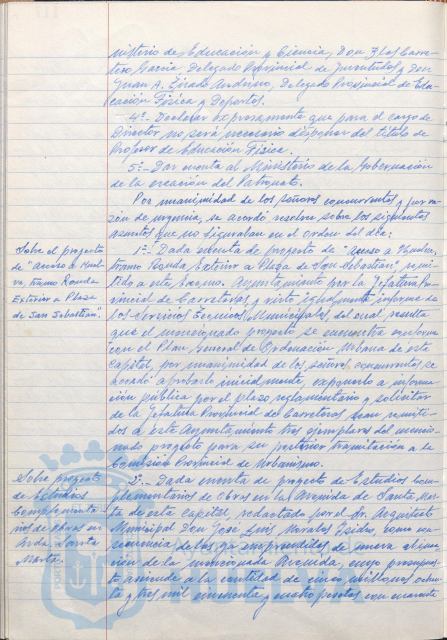 nisterio de Educación y Ciencia, Don Blas Carre-
tero García Delegado Provincial de Juventudes y Don
Juan A. Andivio, Delegado Provincial de Edu-
cación Física y Deportes.
4º- Declarar expresamente que para el cargo de
Director no será necesario disponer del título de
Profesor de Educación Física.
5º- Dar cuenta al Ministerio de la Gobernación
de la creación del Patronato.
Por unanimidad de los señores concurrentes y por ra-
zón de urgencia, se acordó resolver sobre los siguientes
asuntos que no figuraban en el orden del día:
Sobre el proyecto
de "Acceso a Huel-
va, tramo Ronda
Exterior a Plaza
de San Sebastián".
1º- Dada cuenta de proyecto de "Acceso a Huelva,
tramo Ronda Exterior a Plaza de San Sebastián", remi-
tido a este Excmo. Ayuntamiento por la Jefatura Pro-
vincial de Carreteras y visto igualmente informe de
los Servicios Técnicos Municipales, del cual resulta
que el mencionado proyecto se encuentra conforme
con el Plan General de Ordenación Urbana de esta
Capital, por unanimidad de los señores concurrentes, se
acordó aprobarlo inicialmente, exponerlo a informa-
ción pública por el plazo reglamentario y solicitar
de la Jefatura Provincial de Carreteras sean remiti-
dos a este Ayuntamiento tres ejemplares del mencio-
nado proyecto para su posterior tramitación a la
Comisión Provincial de Urbanismo.
Sobre proyecto
de Estudios
Complementa-
rios de obras en
Avda. Santa
Marta.
2º- Dada cuenta de proyecto de Estudios Com-
plementarios de Obras en la Avenida de Santa Mar-
ta de esta capital, redactado por el Sr. Arquitecto
Municipal Don José Luis Morales Isidro, como con-
secuencia de las ya emprendidas de nueva alinea-
ción de la mencionada Avenida, cuyo presupues-
to asciende a la cantidad de cinco millones ochen-
ta y tres mil cincuenta y cuatro pesetas con cuarenta